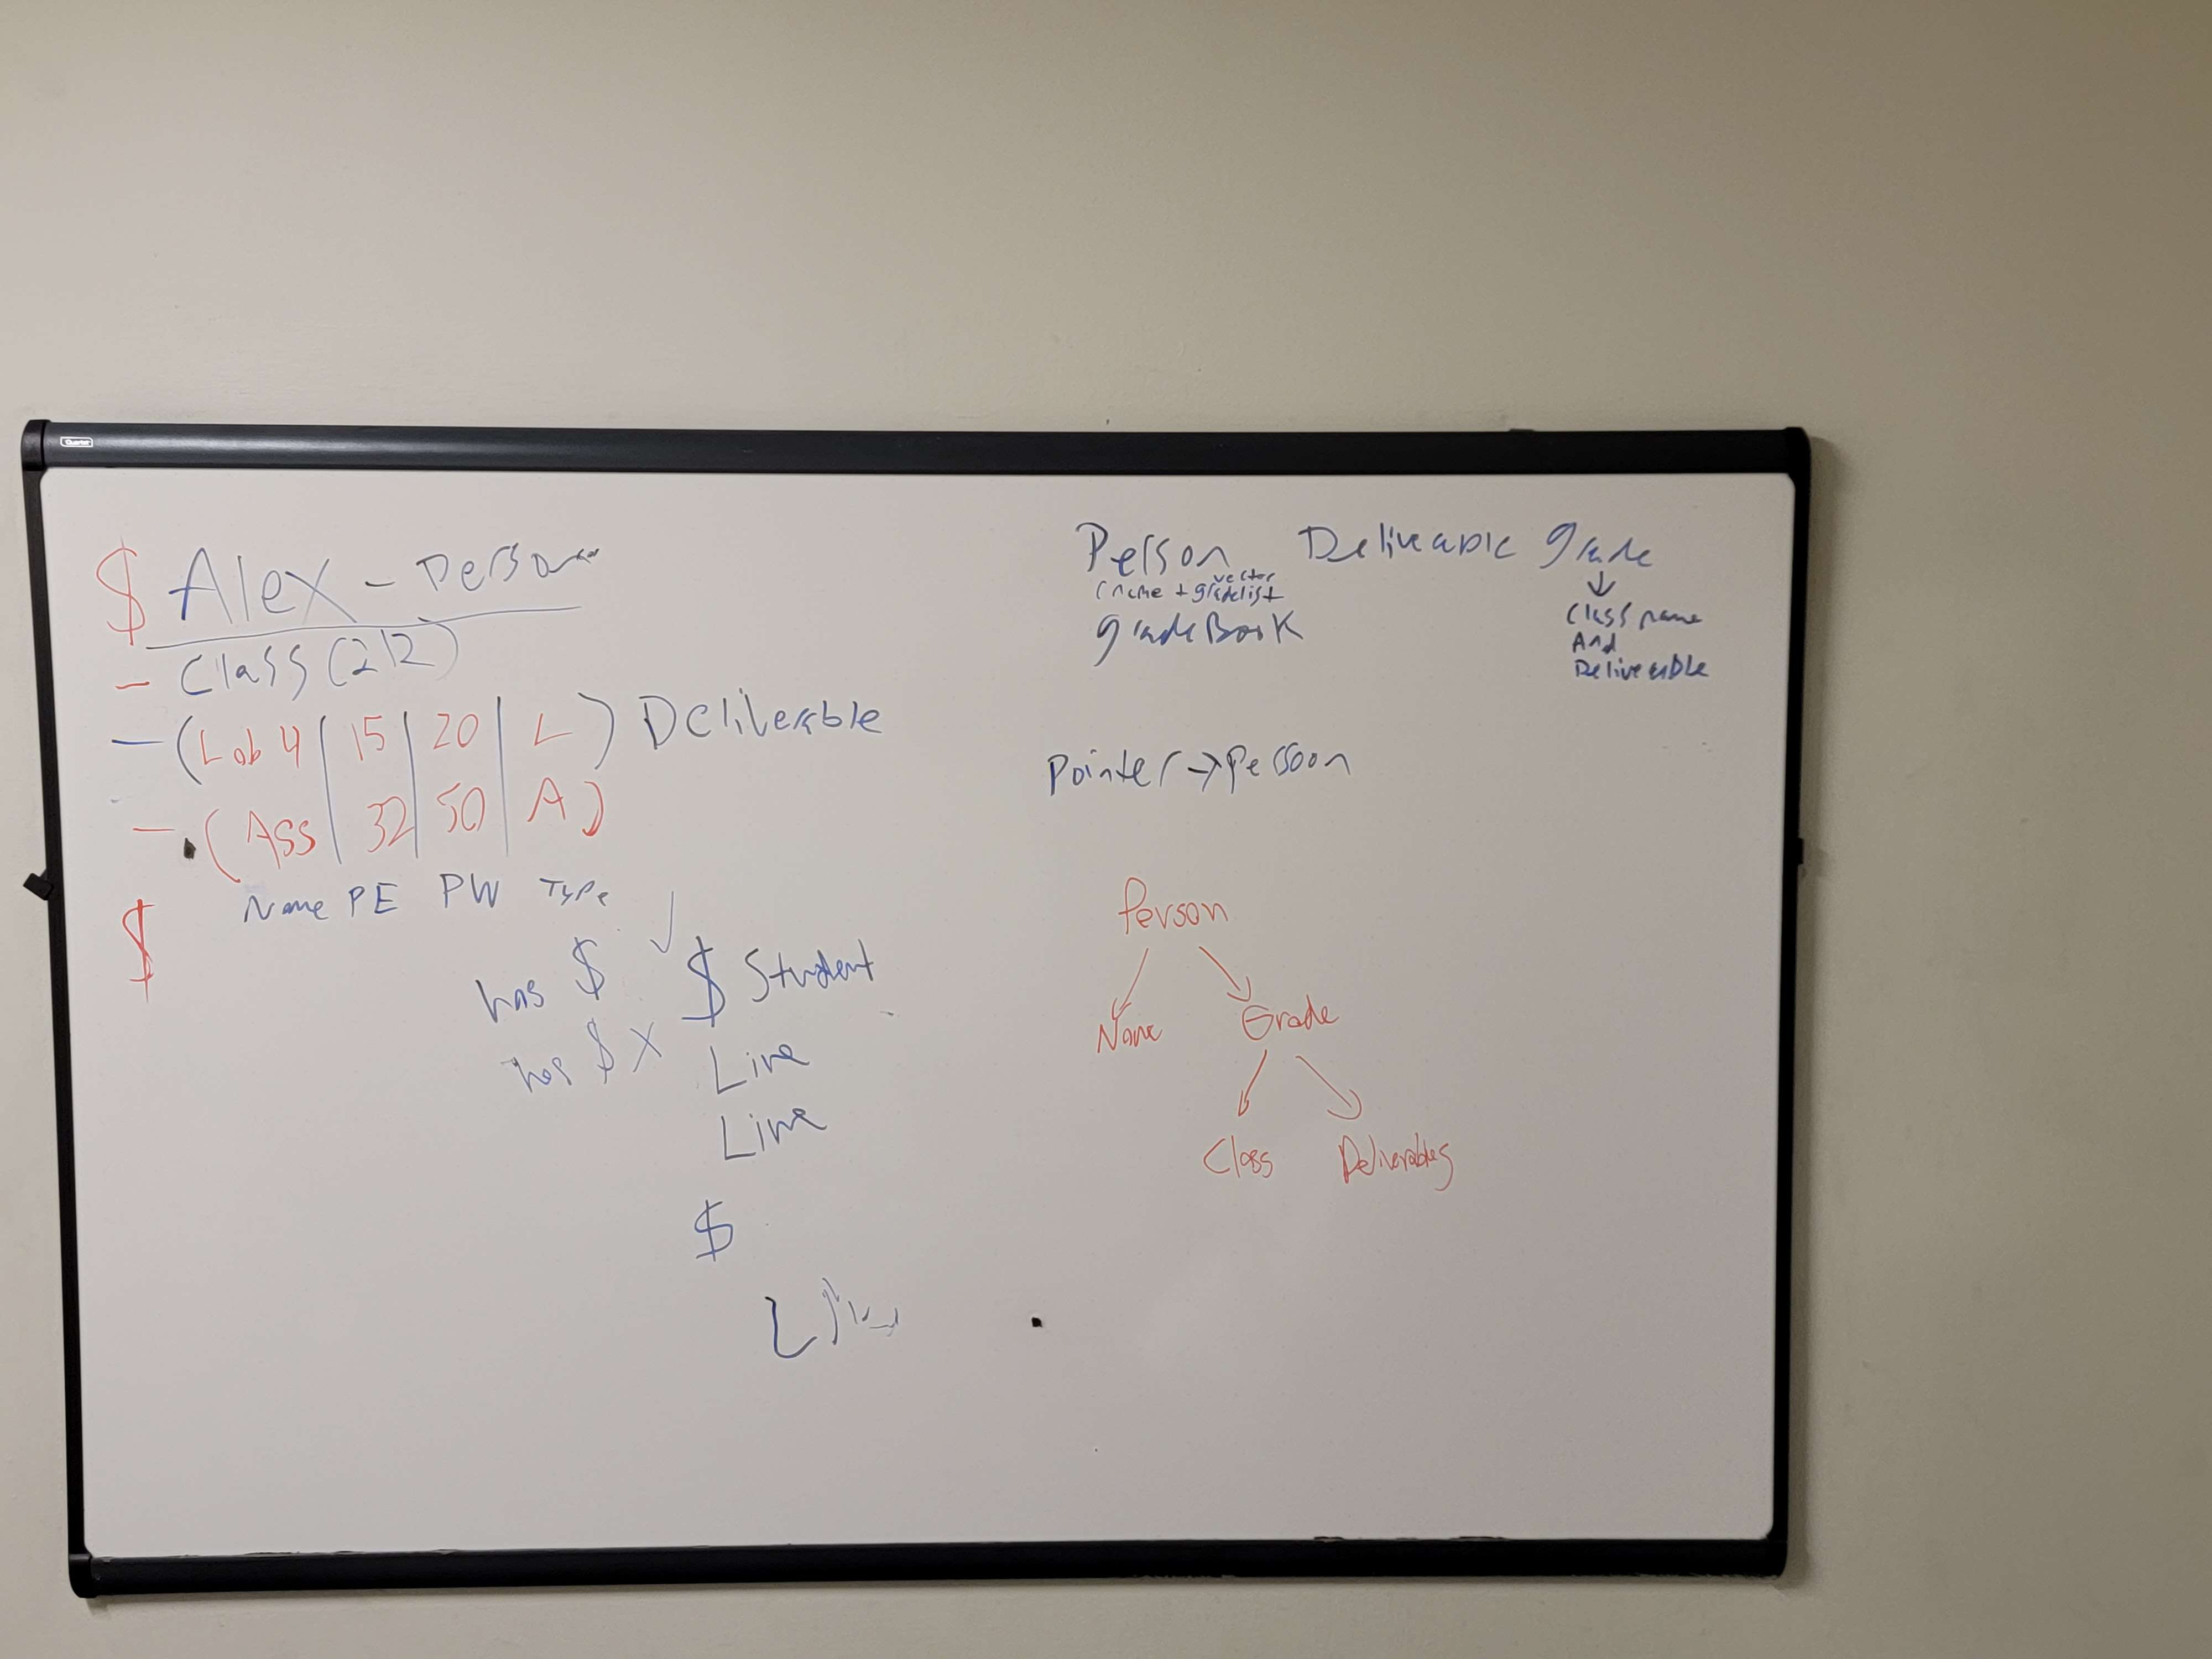 Quartet
$ Alex - Person
- Class (212)
- (Lab 4 | 15 | 20 | L) Deliverable
- (Ass | 32 | 50 | A)
Name PE PW Type
$
has $ ✓ $ Student
has $ X Line
Line
$
Person Deliverable grade
vector
(name + gradelist
gradeBook
↓
Class name
And
Deliverable
Pointer → person
Person
Name Grade
Class Deliverables